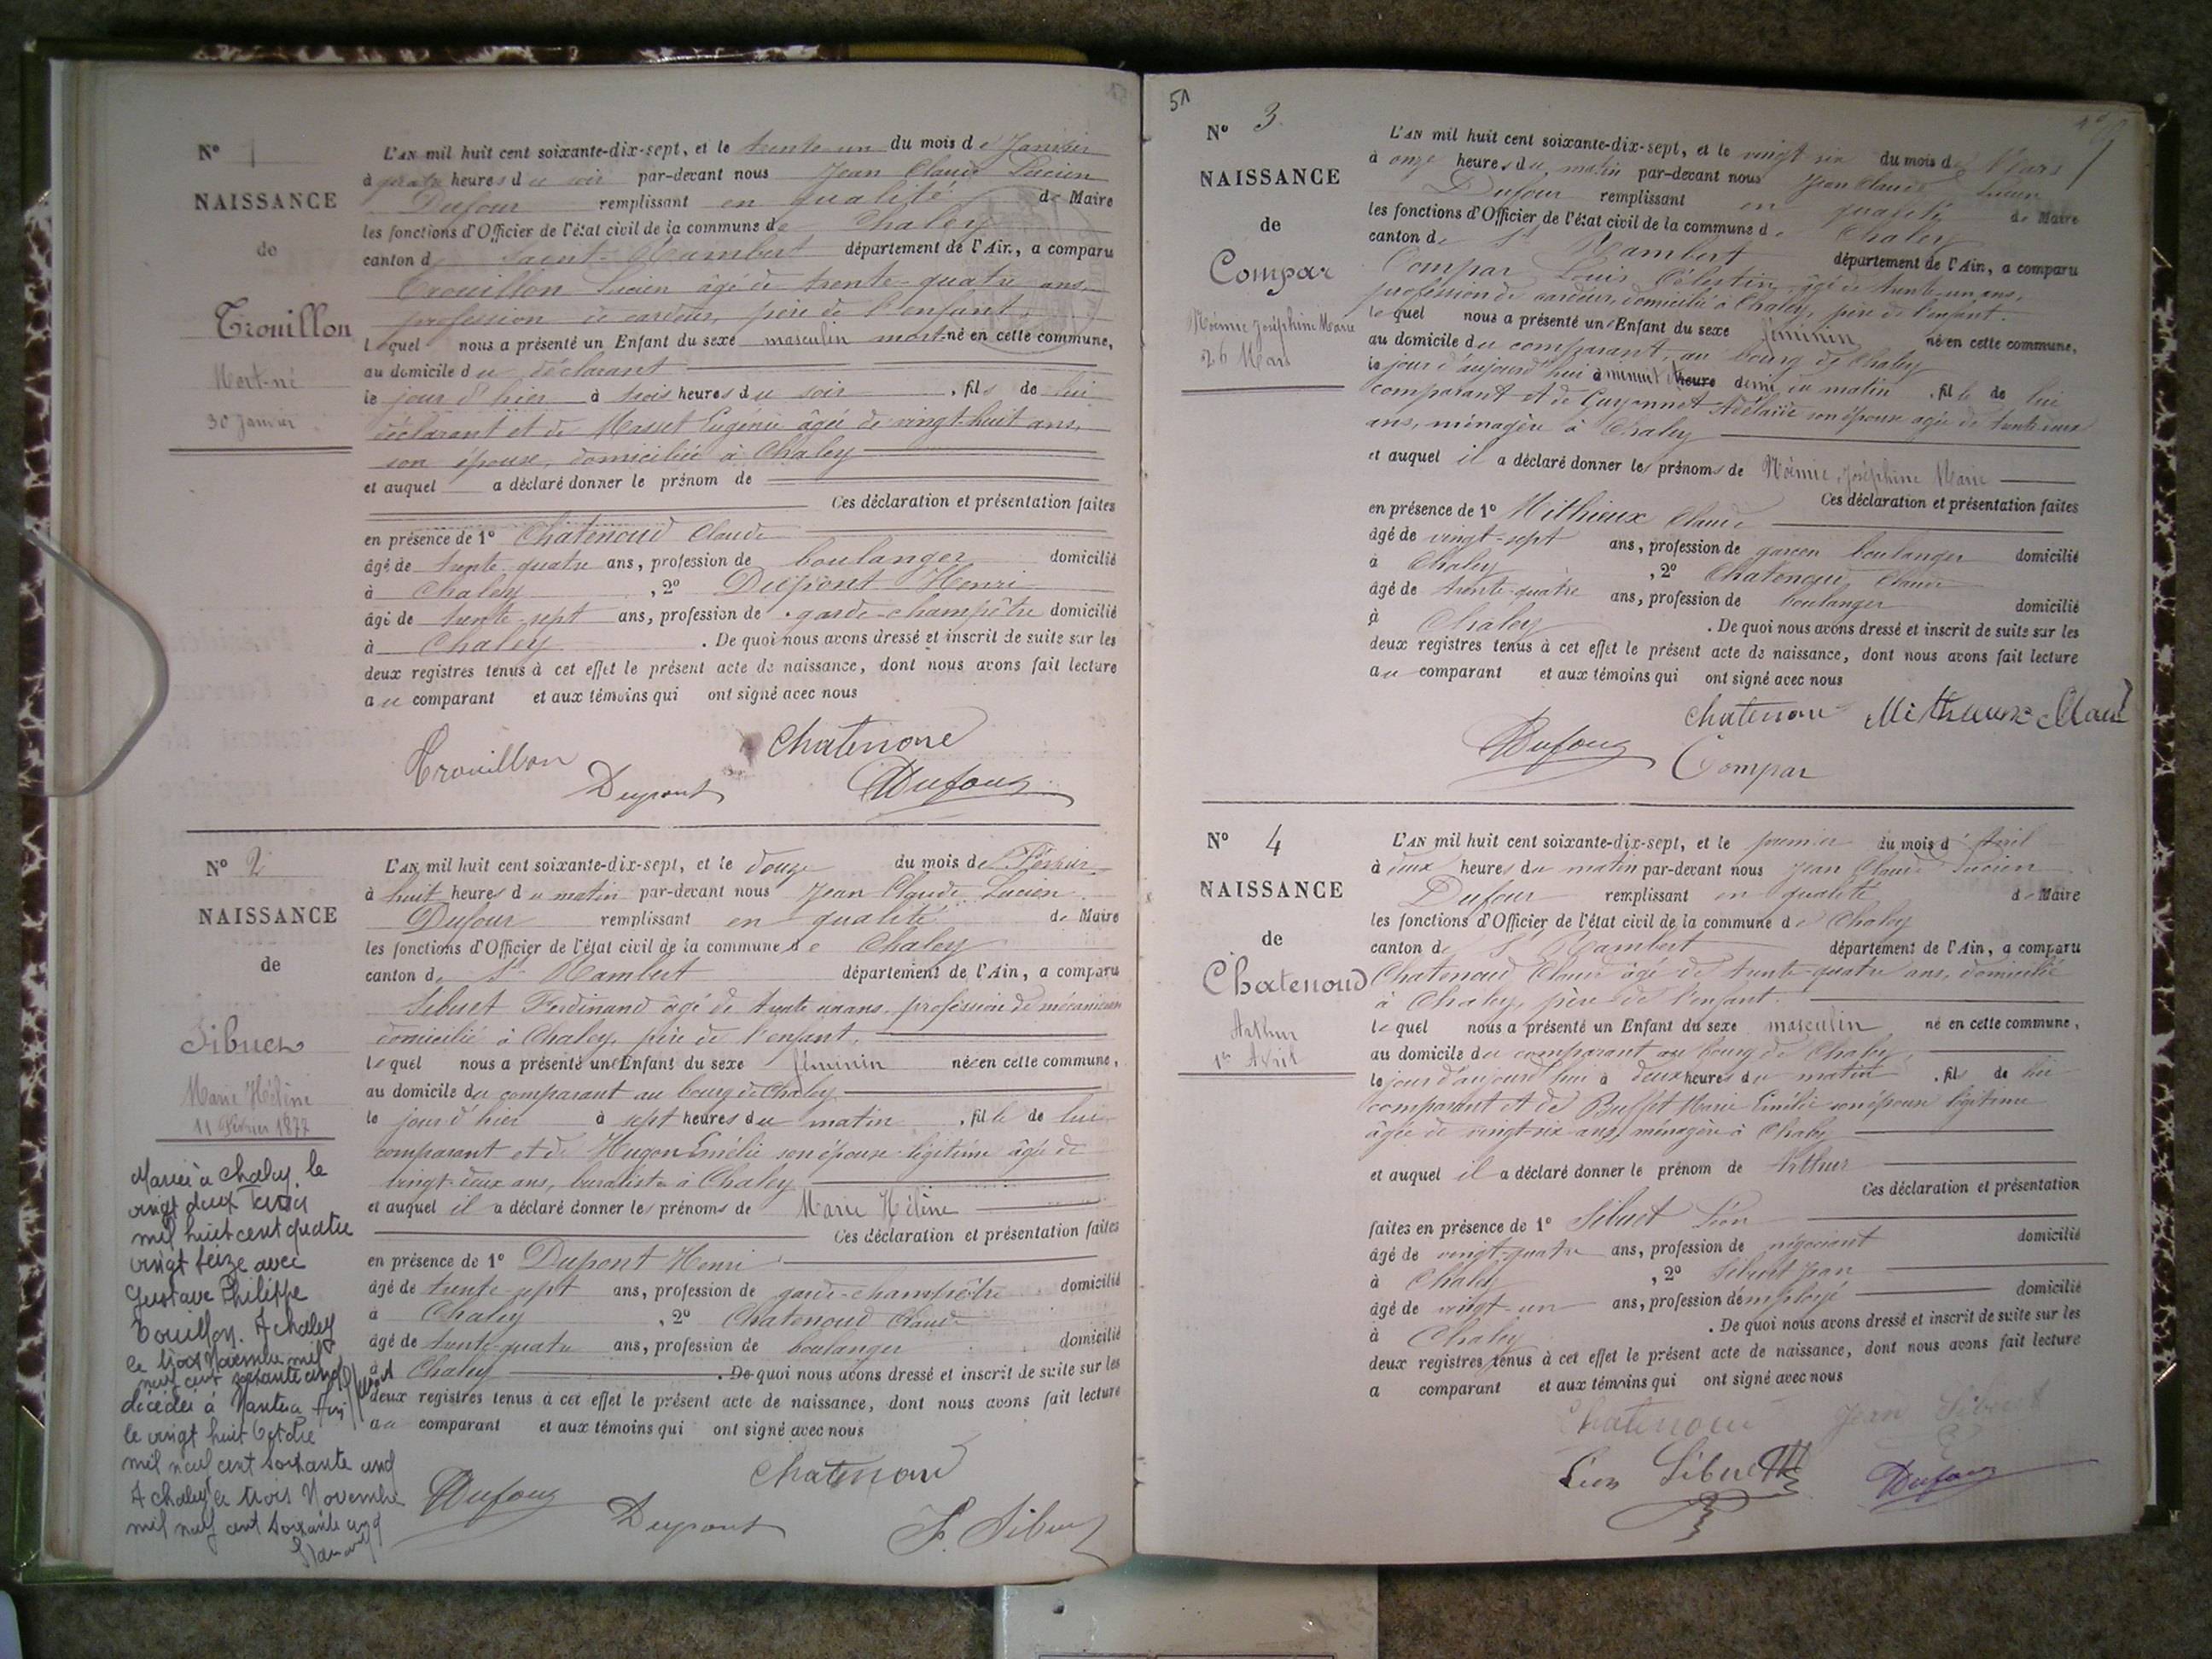 N° 1
NAISSANCE
de
Trouillon
Mort-né
30 Janvier
L'AN mil huit cent soixante-dix-sept, et le trente-un du mois de Janvier
à quatre heures du soir par-devant nous Jean Claude Lucien
Dufour remplissant en qualité de Maire
les fonctions d'Officier de l'état civil de la commune de Chaley
canton de Saint-Rambert département de l'Ain, a comparu
Trouillon Lucien âgé de trente-quatre ans
profession de cardeur, père de l'enfant,
lequel nous a présenté un Enfant du sexe masculin mort-né en cette commune,
au domicile du déclarant
le jour d'hier à trois heures du soir, fils de lui
déclarant et de Masset Eugénie âgée de vingt-huit ans,
son épouse, domiciliée à Chaley
et auquel a déclaré donner le prénom de
Ces déclaration et présentation faites
en présence de 1° Chatenoud Claude
âgé de trente-quatre ans, profession de boulanger domicilié
à Chaley, 2° Dupont Henri
âgé de trente-sept ans, profession de garde-champêtre domicilié
à Chaley. De quoi nous avons dressé et inscrit de suite sur les
deux registres tenus à cet effet le présent acte de naissance, dont nous avons fait lecture
au comparant et aux témoins qui ont signé avec nous
Trouillon Chatenoud
Dupont Dufour
N° 2
NAISSANCE
de
Sibuet
Marie Hélène
11 Février 1877
Mariée à Chaley, le
vingt deux
mil huit cent quatre
vingt seize avec
Gustave Philippe
Touillon. A Chaley
le trois Novembre mil
neuf cent soixante cinq
décédée à Nantua Ain
le vingt huit Octobre
mil neuf cent soixante cinq
A Chaley le trois Novembre
mil neuf cent soixante cinq
L'AN mil huit cent soixante-dix-sept, et le douze du mois de Février
à huit heures du matin par-devant nous Jean Claude Lucien
Dufour remplissant en qualité de Maire
les fonctions d'Officier de l'état civil de la commune de Chaley
canton de St Rambert département de l'Ain, a comparu
Sibuet Ferdinand âgé de trente un ans, profession de mécanicien
domicilié à Chaley, père de l'enfant,
lequel nous a présenté un Enfant du sexe féminin née en cette commune,
au domicile du comparant au bourg de Chaley
le jour d'hier à sept heures du matin, fille de lui
comparant et de Hugon Emélie son épouse légitime âgée de
vingt-deux ans, buraliste à Chaley
et auquel il a déclaré donner les prénoms de Marie Hélène
Ces déclaration et présentation faites
en présence de 1° Dupont Henri
âgé de trente-sept ans, profession de garde-champêtre domicilié
à Chaley, 2° Chatenoud Claude
âgé de trente-quatre ans, profession de boulanger domicilié
à Chaley. De quoi nous avons dressé et inscrit de suite sur les
deux registres tenus à cet effet le présent acte de naissance, dont nous avons fait lecture
au comparant et aux témoins qui ont signé avec nous
Chatenoud
Dufour Dupont F. Sibuet
51
N° 3
NAISSANCE
de
Compar
Noémie Joséphine Marie
26 Mars
L'AN mil huit cent soixante-dix-sept, et le vingt six du mois de Mars
à onze heures du matin par-devant nous Jean Claude Lucien
Dufour remplissant en qualité de Maire
les fonctions d'Officier de l'état civil de la commune de Chaley
canton de St Rambert département de l'Ain, a comparu
Compar Louis Célestin, âgé de trente-un ans,
profession de cardeur, domicilié à Chaley, père de l'enfant.
lequel nous a présenté un Enfant du sexe féminin né en cette commune,
au domicile du comparant au bourg de Chaley
le jour d'aujourd'hui à minuit et heure demi du matin, fille de lui
comparant et de Guyonnet Adélaïde son épouse agée de trente deux
ans, ménagère à Chaley
et auquel il a déclaré donner les prénoms de Noémie, Joséphine Marie
Ces déclaration et présentation faites
en présence de 1° Mithieux Claude
âgé de vingt-sept ans, profession de garçon boulanger domicilié
à Chaley, 2° Chatenoud Claude
âgé de trente-quatre ans, profession de boulanger domicilié
à Chaley. De quoi nous avons dressé et inscrit de suite sur les
deux registres tenus à cet effet le présent acte de naissance, dont nous avons fait lecture
au comparant et aux témoins qui ont signé avec nous
Chatenoud Mithieux Claude
Dufour Compar
N° 4
NAISSANCE
de
Chatenoud
Arthur
1er Avril
L'AN mil huit cent soixante-dix-sept, et le premier du mois d'Avril
à deux heures du matin par-devant nous Jean Claude Lucien
Dufour remplissant en qualité de Maire
les fonctions d'Officier de l'état civil de la commune de Chaley
canton de St Rambert département de l'Ain, a comparu
Chatenoud Claude âgé de trente-quatre ans, domicilié
à Chaley, père de l'enfant.
lequel nous a présenté un Enfant du sexe masculin né en cette commune,
au domicile du comparant au bourg de Chaley,
le jour d'aujourd'hui à deux heures du matin, fils de lui
comparant et de Buffet Marie Emélie son épouse légitime
âgée de vingt-six ans, ménagère à Chaley
et auquel il a déclaré donner le prénom de Arthur
Ces déclaration et présentation
faites en présence de 1° Sibuet Léon
âgé de vingt-quatre ans, profession de négociant domicilié
à Chaley, 2° Sibuet Jean
âgé de vingt-un ans, profession d'employé domicilié
à Chaley. De quoi nous avons dressé et inscrit de suite sur les
deux registres tenus à cet effet le présent acte de naissance, dont nous avons fait lecture
a comparant et aux témoins qui ont signé avec nous
Chatenoud Jean Sibuet
Léon Sibuet Dufour